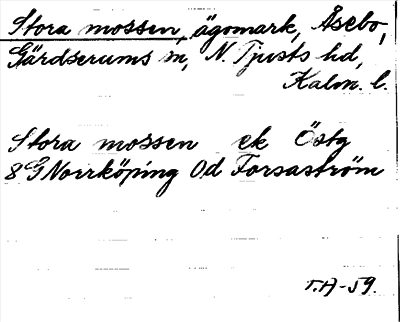 Stora mossen, ägomark, Åsebo,
Gärdserums sn, N. Tjusts hd,
Kalm. l.
Stora mossen ek Östg
8G Norrköping Od Forsaström
T.A-59.